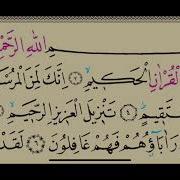 ـمِ اللهِ الرَّحْمٰـ
الْقُرْاٰنِ الْحَكِيمِ ﴿٢﴾ اِنَّكَ لَمِنَ الْمُرْسَـ
ـسْتَقِيمٍ ﴿٤﴾ تَنْزِيلَ الْعَزِيزِ الرَّحِيمِ ﴿٥﴾
ـرَ اٰبَاؤُهُمْ فَهُمْ غَافِلُونَ ﴿٦﴾ لَقَدْ